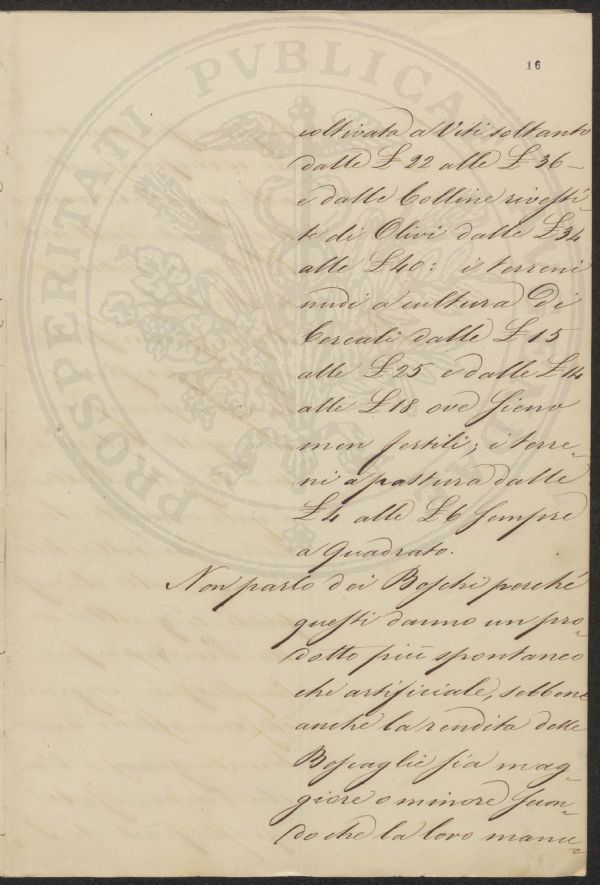 16
PROSPERITATI PVBLICAE
coltivata a Viti soltanto
dalle £ 22 alle £ 36 –
e dalle Colline rivesti-
te di Olivi dalle £ 34
alle £ 40: i terreni
nudi a cultura di
Cereali dalle £ 15
alle £ 25 e dalle £ 14
alle £ 18 ove sieno
men fertili; i terre-
ni a pastura dalle
£ 4 alle £ 6 sempre
a quadrato.
Non parlo dei Boschi perché
questi danno un pro-
dotto più spontaneo
che artificiale, sebbene
anche la rendita delle
Boscaglie sia mag-
giore o minore secon-
do che la loro manu-